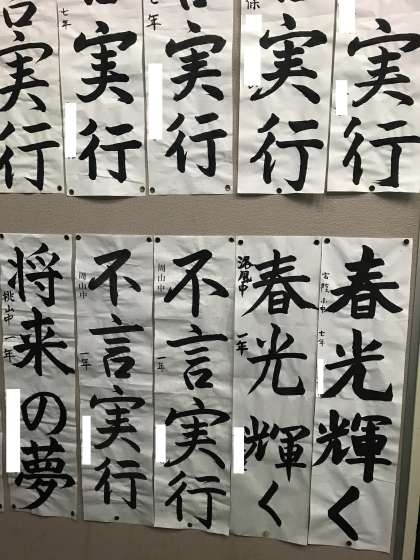 実行
実行
実行
七年
実行
七年
言実行
春光輝く
宕陰小中 七年
春光輝く
洛風中 一年
不言実行
周山中 一年
不言実行
周山中 一年
将来の夢
桃山中 一年